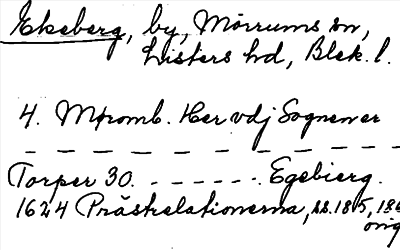 Ekeberg, by, Mörrums sn,
Listers hd, Blek. l.
4. Mpromb. Her vdj Sognener
— — — — — — — — — —
Torper 30. - - - - - - . Egebierg.
1624 Prästrelationerna, s.s. 1815, 186
orig